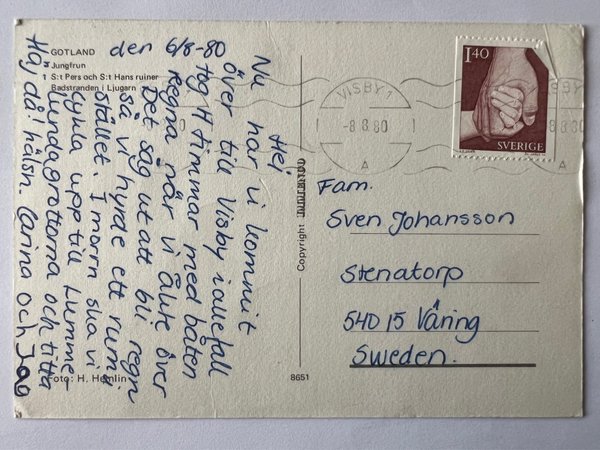 GOTLAND
Jungfrun
S:t Pers och S:t Hans ruiner
Badstranden i Ljugarn
den 6/8-80
Hej
Nu har vi kommit
över till Visby iallefall
tog 4 timmar med båten
regna när vi åkte över
Det såg ut att bli regn
så vi hyrde ett rum i
stället. I morrn ska vi
cykla upp till Lumme-
lundagrottorna och titta
Haj då! hälsn. Carina och
Foto: H. Hemlin
Copyright
8651
1.40
SVERIGE
VISBY 1
-8.8.80
A
Fam.
Sven Johansson
Stenatorp
540 15 Våring
Sweden.